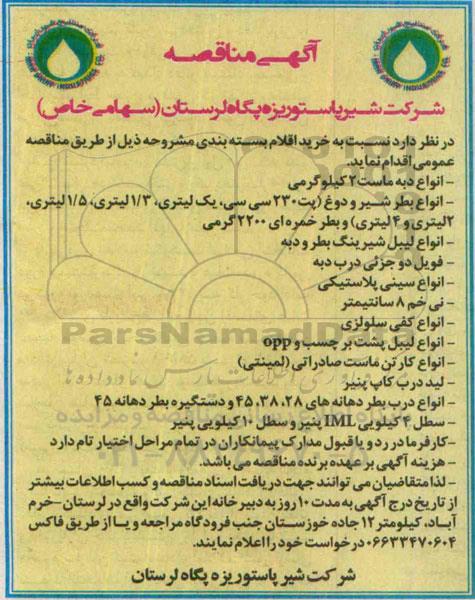 آگهی مناقصه
شرکت شیر پاستوریزه پگاه لرستان (سهامی خاص)
در نظر دارد نسبت به خرید اقلام بسته بندی مشروحه ذیل از طریق مناقصه
عمومی اقدام نماید.
- انواع دبه ماست ۲ کیلوگرمی
- انواع بطر شیر و دوغ (پت ۲۳۰ سی سی، یک لیتری، ۱/۳ لیتری، ۱/۵ لیتری،
۲ لیتری و ۴ لیتری) و بطر خمره ای ۲۲۰۰ گرمی
- انواع لیبل شیرینگ بطر و دبه
- فویل دو جزئی درب دبه
- انواع سینی پلاستیکی
- نی خم ۸ سانتیمتر
- انواع کفی سلولزی
- انواع لیبل پشت بر چسب و opp
- انواع کارتن ماست صادراتی (لمینتی)
- لید درب کاپ پنیر
- انواع درب بطر دهانه های ۲۸، ۳۸، ۴۵ و دستگیره بطر دهانه ۴۵
- سطل ۴ کیلویی IML پنیر و سطل ۱۰ کیلویی پنیر
- کارفرما در رد و یا قبول مدارک پیمانکاران در تمام مراحل اختیار تام دارد
- هزینه آگهی بر عهده برنده مناقصه می باشد.
- لذا متقاضیان می توانند جهت دریافت اسناد مناقصه و کسب اطلاعات بیشتر
از تاریخ درج آگهی به مدت ۱۰ روز به دبیرخانه این شرکت واقع در لرستان - خرم
آباد، کیلومتر ۱۲ جاده خوزستان جنب فرودگاه مراجعه و یا از طریق فاکس
۰۶۶۳۳۴۷۰۶۰۴ درخواست خود را اعلام نمایند.
شرکت شیر پاستوریزه پگاه لرستان